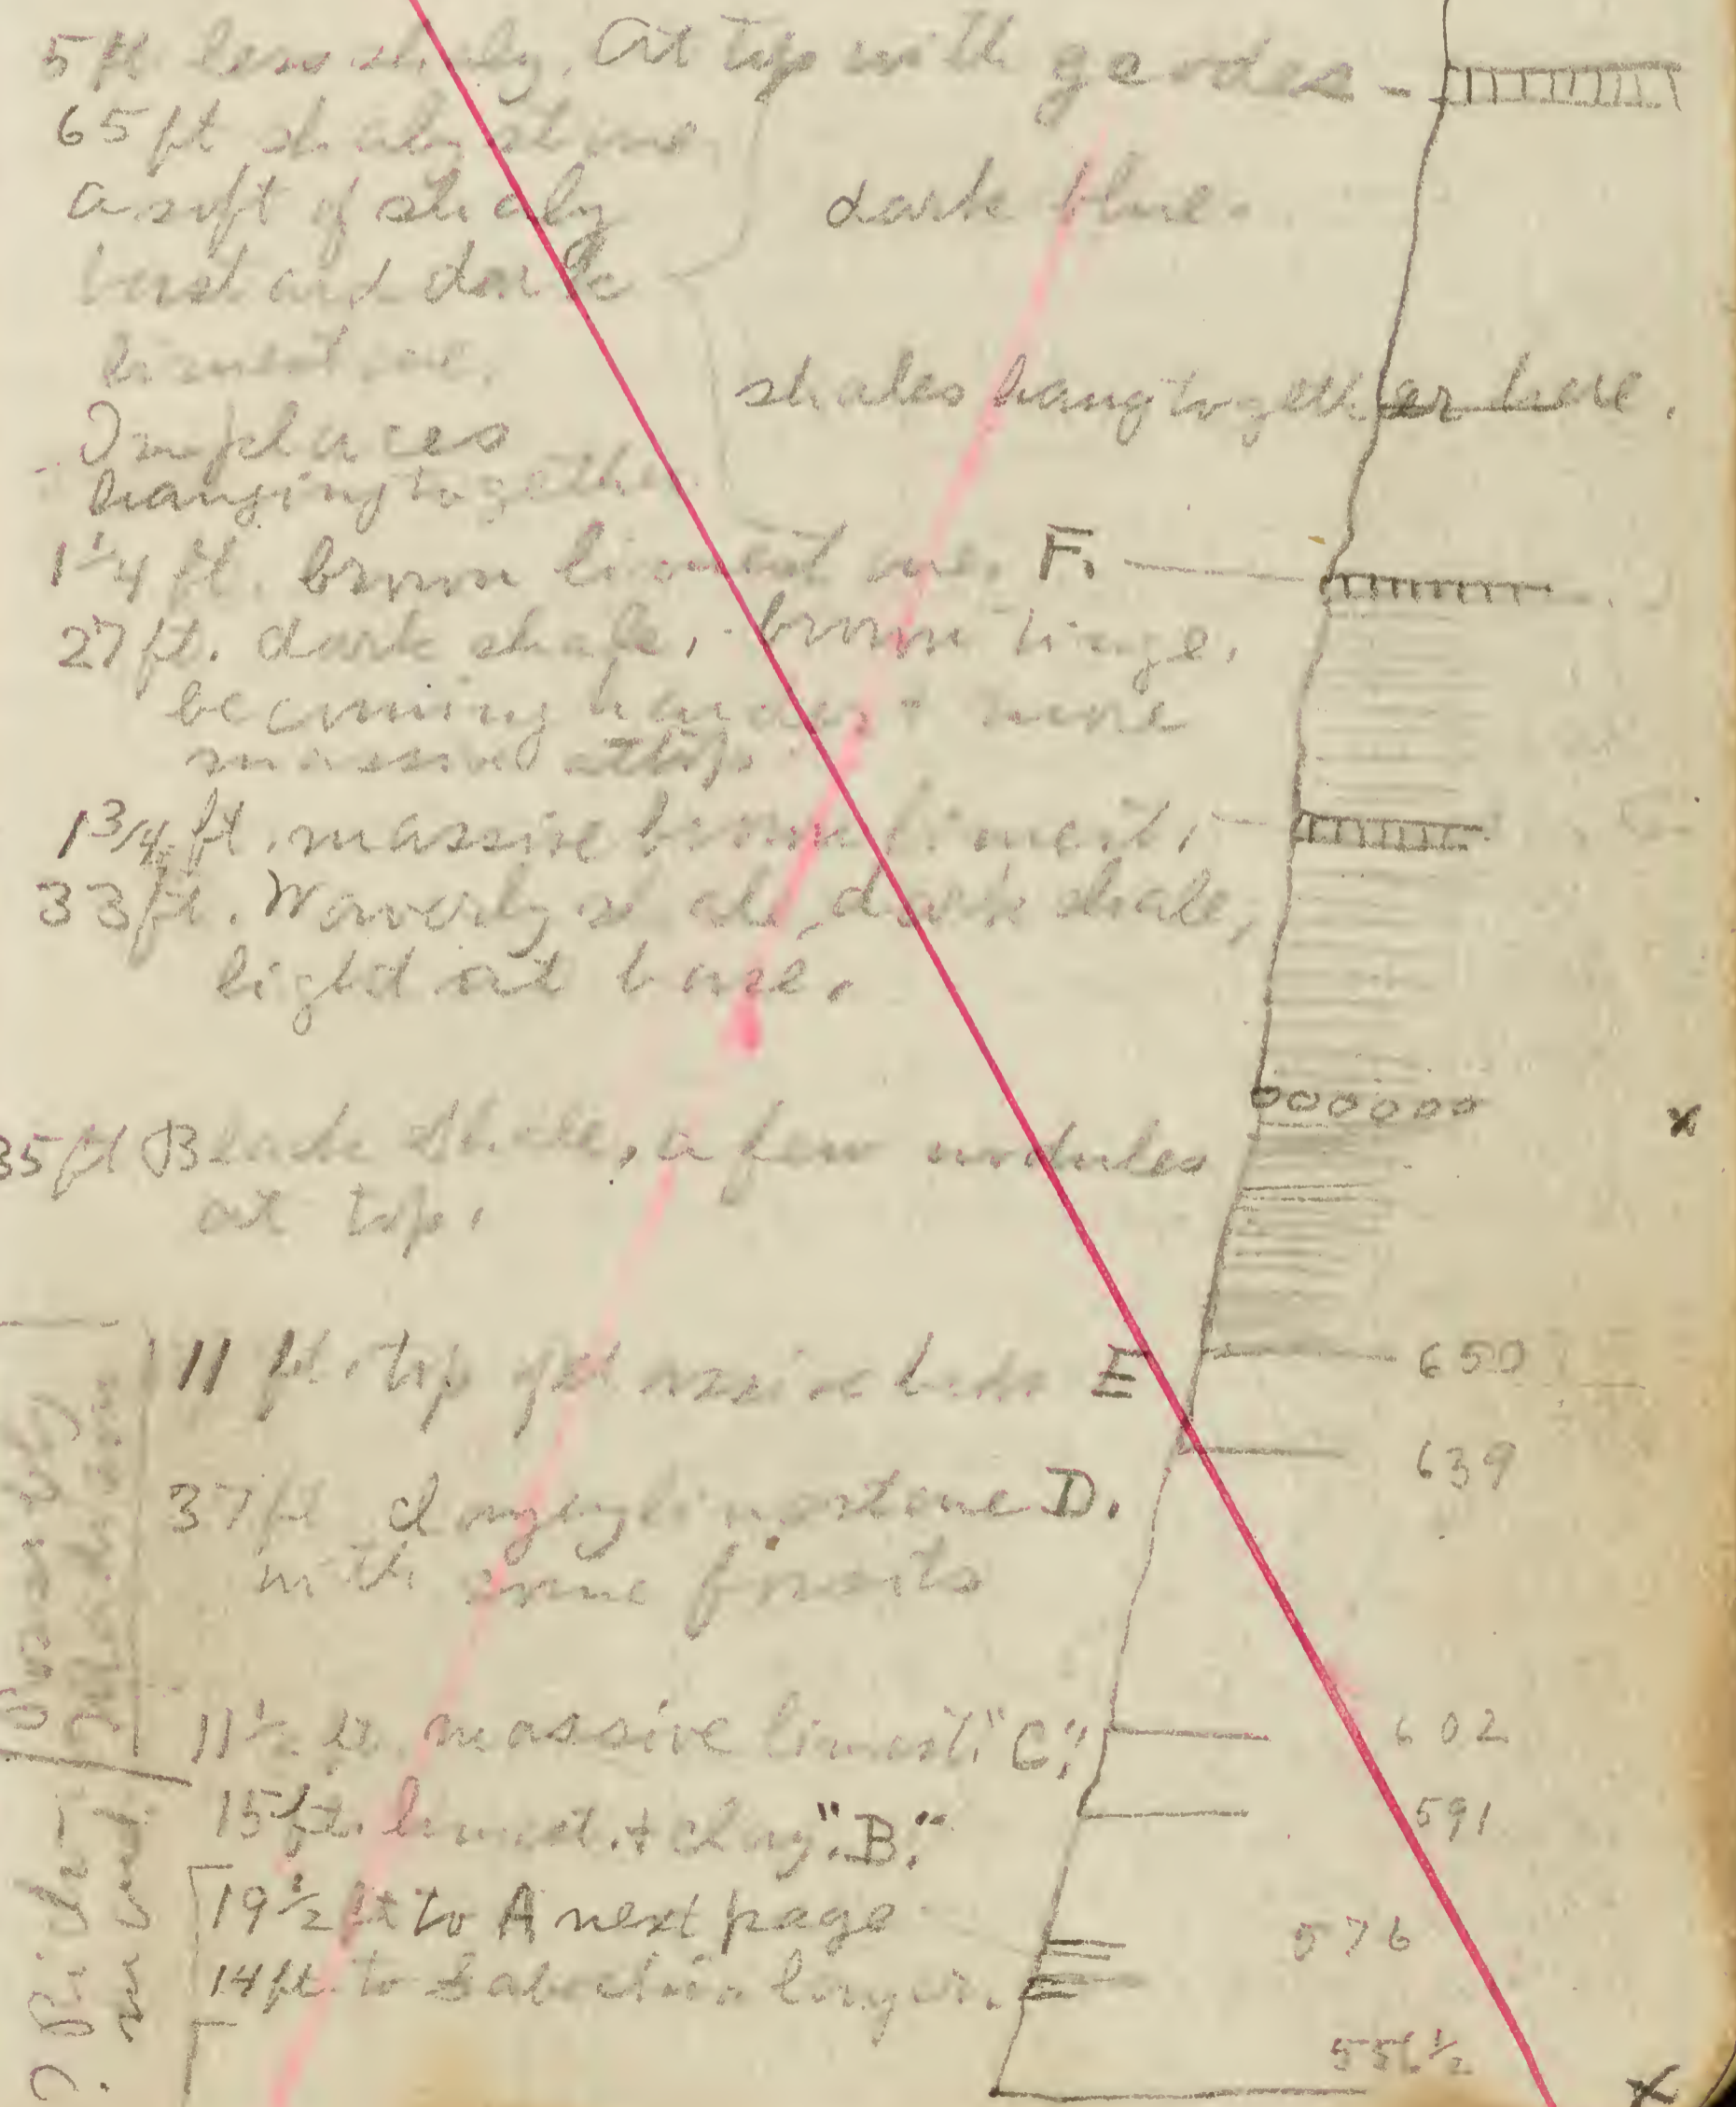 5 ft less shaly. At top with geodes -
65 ft shaly stone
a soft of shaly
dark blue.
and dark
limestone.
shales hang together here.
In places
hanging together
1 1/4 ft. brown limestone. F.
27 ft. dark shale, brown tinge,
becoming harder + more
massive at top.
1 3/4 ft. massive brown limest.
33 ft. Waverly shale, dark shale,
light at base.
35 ft Black Shale, a few nodules
at top.
x
11 ft. top of massive beds E
650
639
37 ft clayey limestone D.
with some fossils
11 1/2 ft. massive limest. "C",
602
15 ft. limest. + clay "B."
591
19 1/2 ft to A next page
576
14 ft. to
556 1/2
x
? Richm